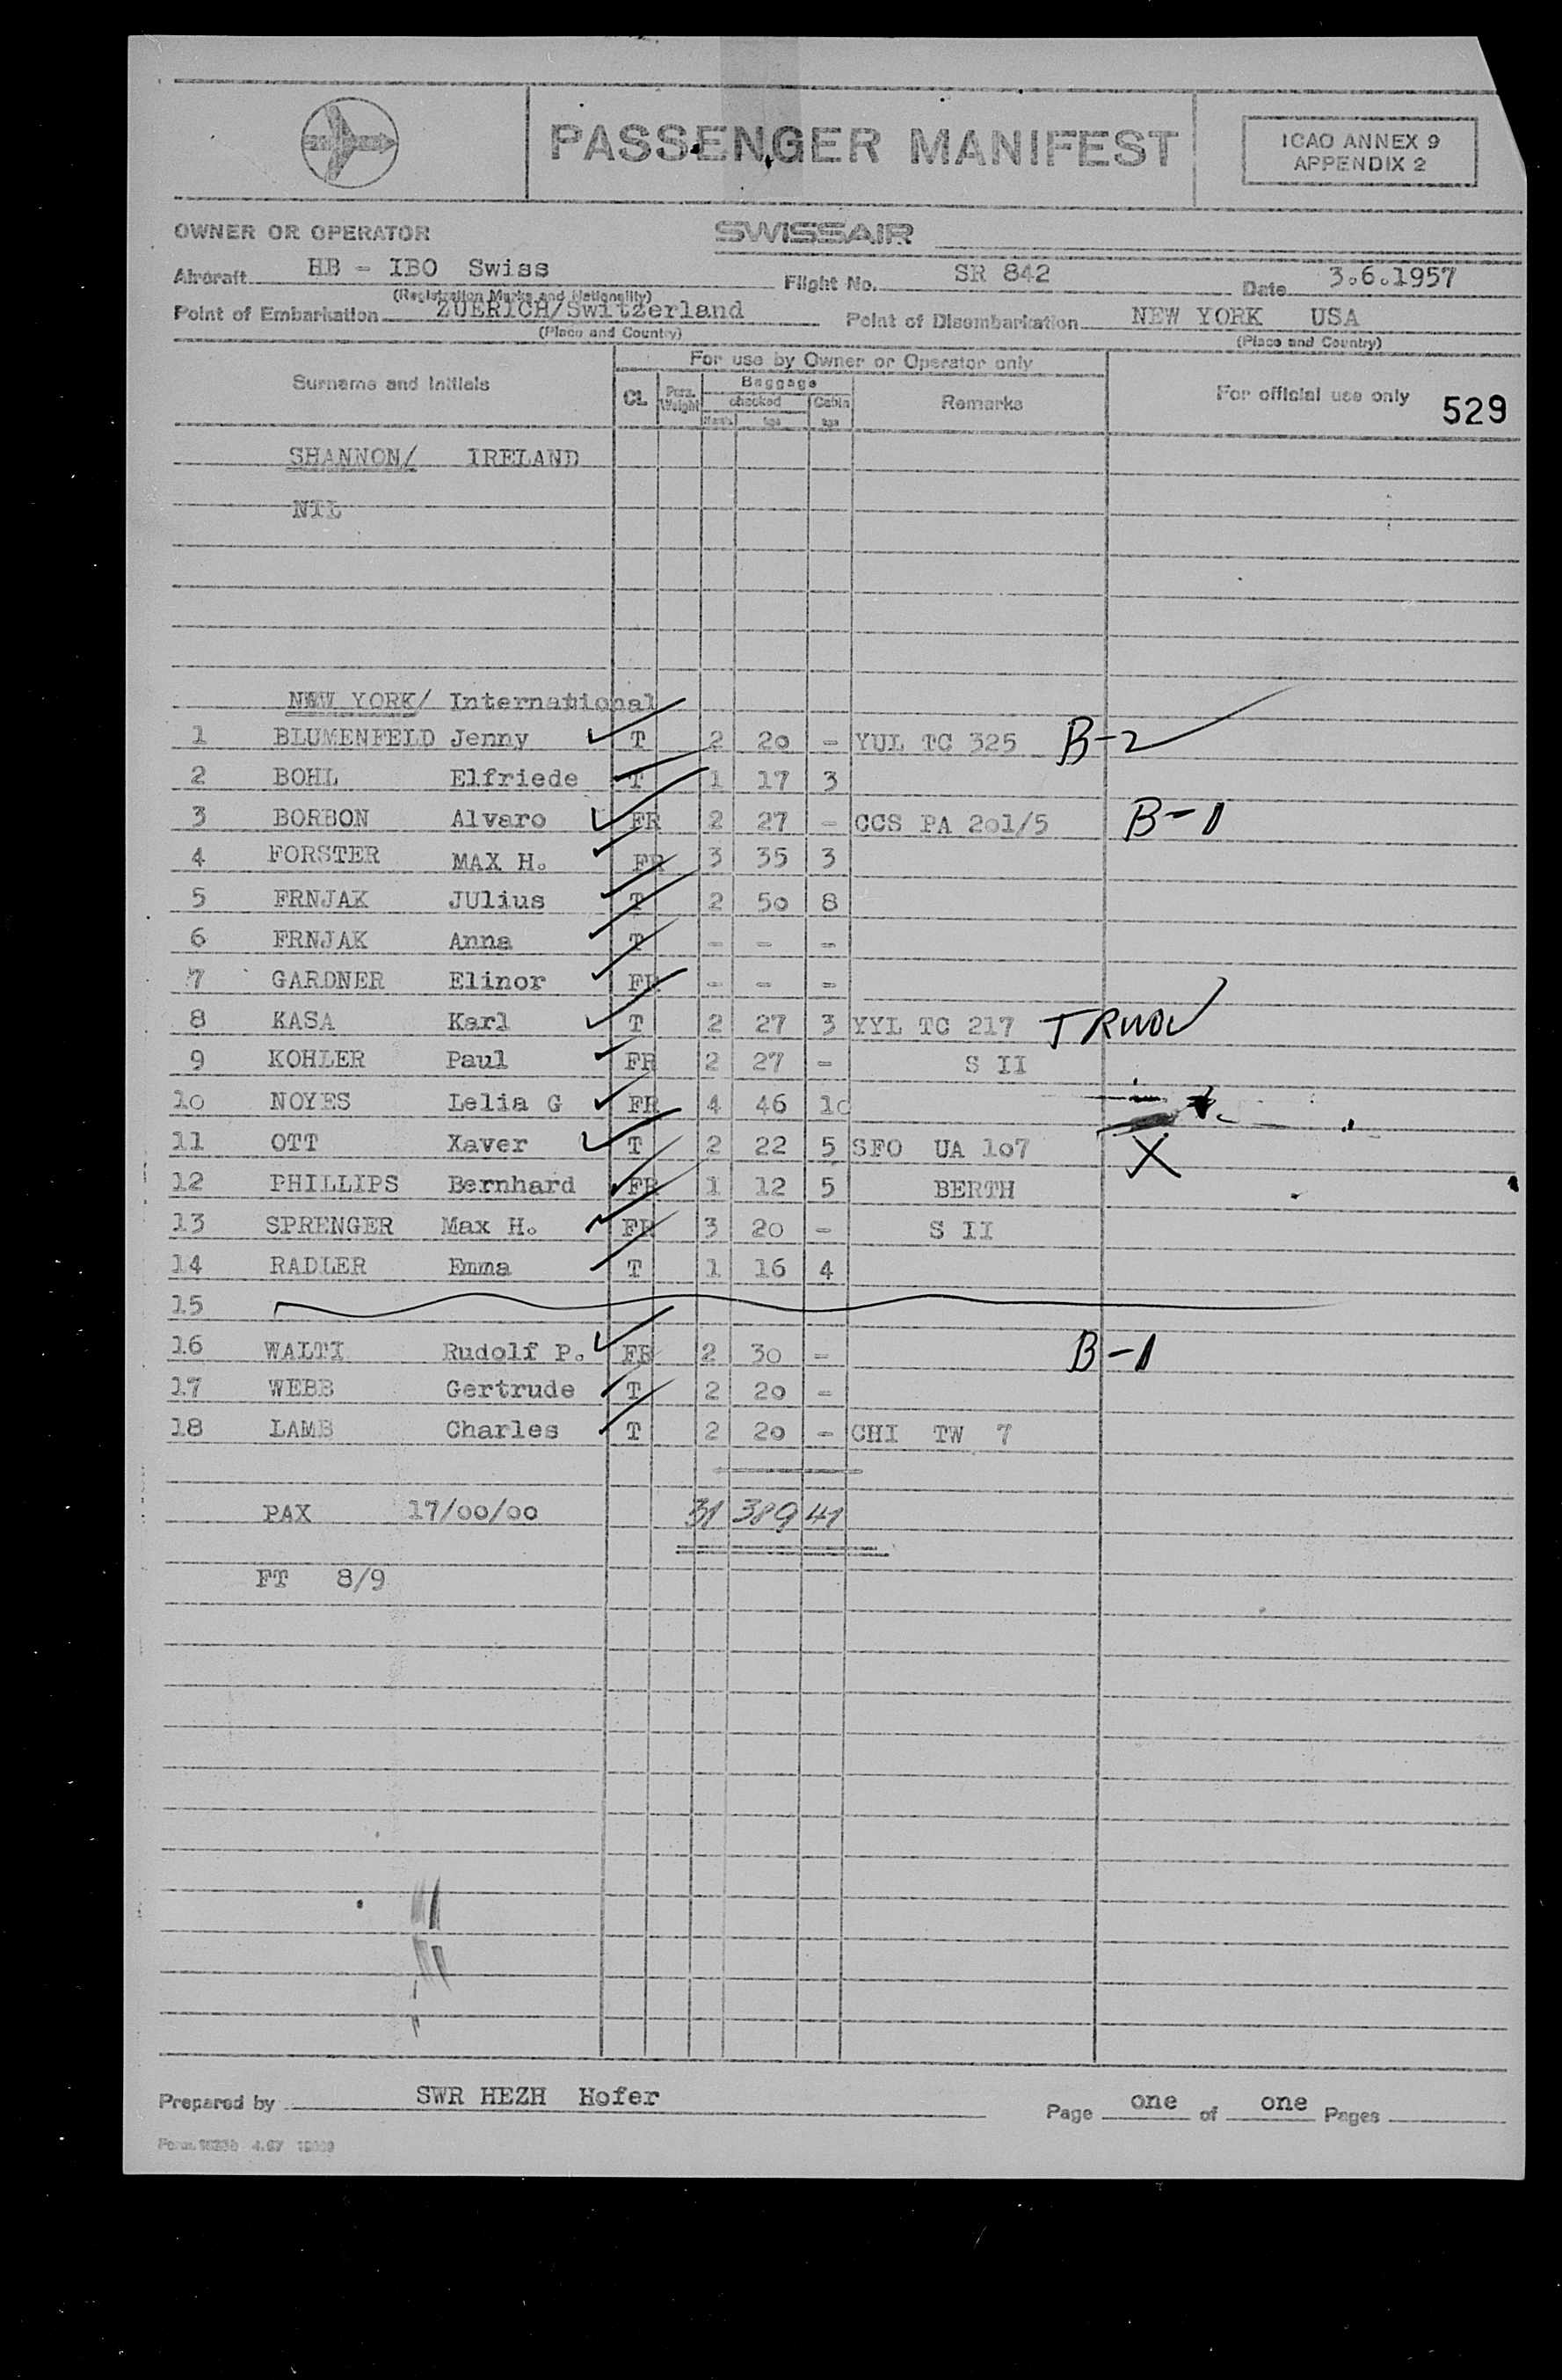 PASSENGER MANIFEST
ICAO ANNEX 9
APPENDIX 2
OWNER OR OPERATOR SWISSAIR
Aircraft HB - IBO Swiss Flight No. SR 842 Date 3.6.1957
(Registration Marks and Nationality)
Point of Embarkation ZUERICH/Switzerland Point of Disembarkation NEW YORK USA
(Place and Country) (Place and Country)
For use by Owner or Operator only
Surname and Initials CL Pers. Weight Baggage checked kgs Cabin kgs Remarks For official use only 529
SHANNON/ IRELAND
NIL
NEW YORK/ International
1 BLUMENFELD Jenny T 2 20 - YUL TC 325 B-2
2 BOHL Elfriede T 1 17 3
3 BORBON Alvaro FR 2 27 - CCS PA 201/5 B-1
4 FORSTER MAX H. FR 3 35 3
5 FRNJAK JUlius T 2 50 8
6 FRNJAK Anna T - - -
7 GARDNER Elinor FR - - -
8 KASA Karl T 2 27 3 YYL TC 217
9 KOHLER Paul FR 2 27 - S II
10 NOYES Lelia G FR 4 46 10
11 OTT Xaver T 2 22 5 SFO UA 107 X
12 PHILLIPS Bernhard FR 1 12 5 BERTH
13 SPRENGER Max H. FR 3 20 - S II
14 RADLER Emma T 1 16 4
15
16 WALTI Rudolf P. FR 2 30 - B-1
17 WEBB Gertrude T 2 20 -
18 LAMB Charles T 2 20 - CHI TW 7
PAX 17/00/00 31 389 41
FT 8/9
Prepared by SWR HEZH Hofer Page one of one Pages